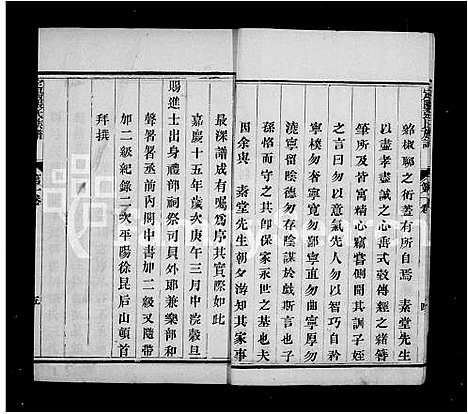 蛞椒聊之衍蓋有所自焉 素堂先生
以盡孝盡誠之心垂式穀傳經之緒簪
筆所及皆寓精心竊嘗側聞其訓子姪
之言曰勿以意氣先人勿以智巧自矜
寧樸勿華寧寬勿鄙寧直勿曲寧厚勿
澆寧留陰德勿存陰謀於戲斯言也子
孫恪而守之其即保家永世之基也夫
因余與 素堂先生朝夕游知其家事
最深譜成有囑爲序其實際如此
嘉慶十五年歲次庚午三月中浣穀旦
賜進士出身禮部祠祭司員外郎兼樂部和
聲署署丞前內閣中書加二級又隨帶
加二級紀錄二次平陽徐昆后山頓首
拜撰